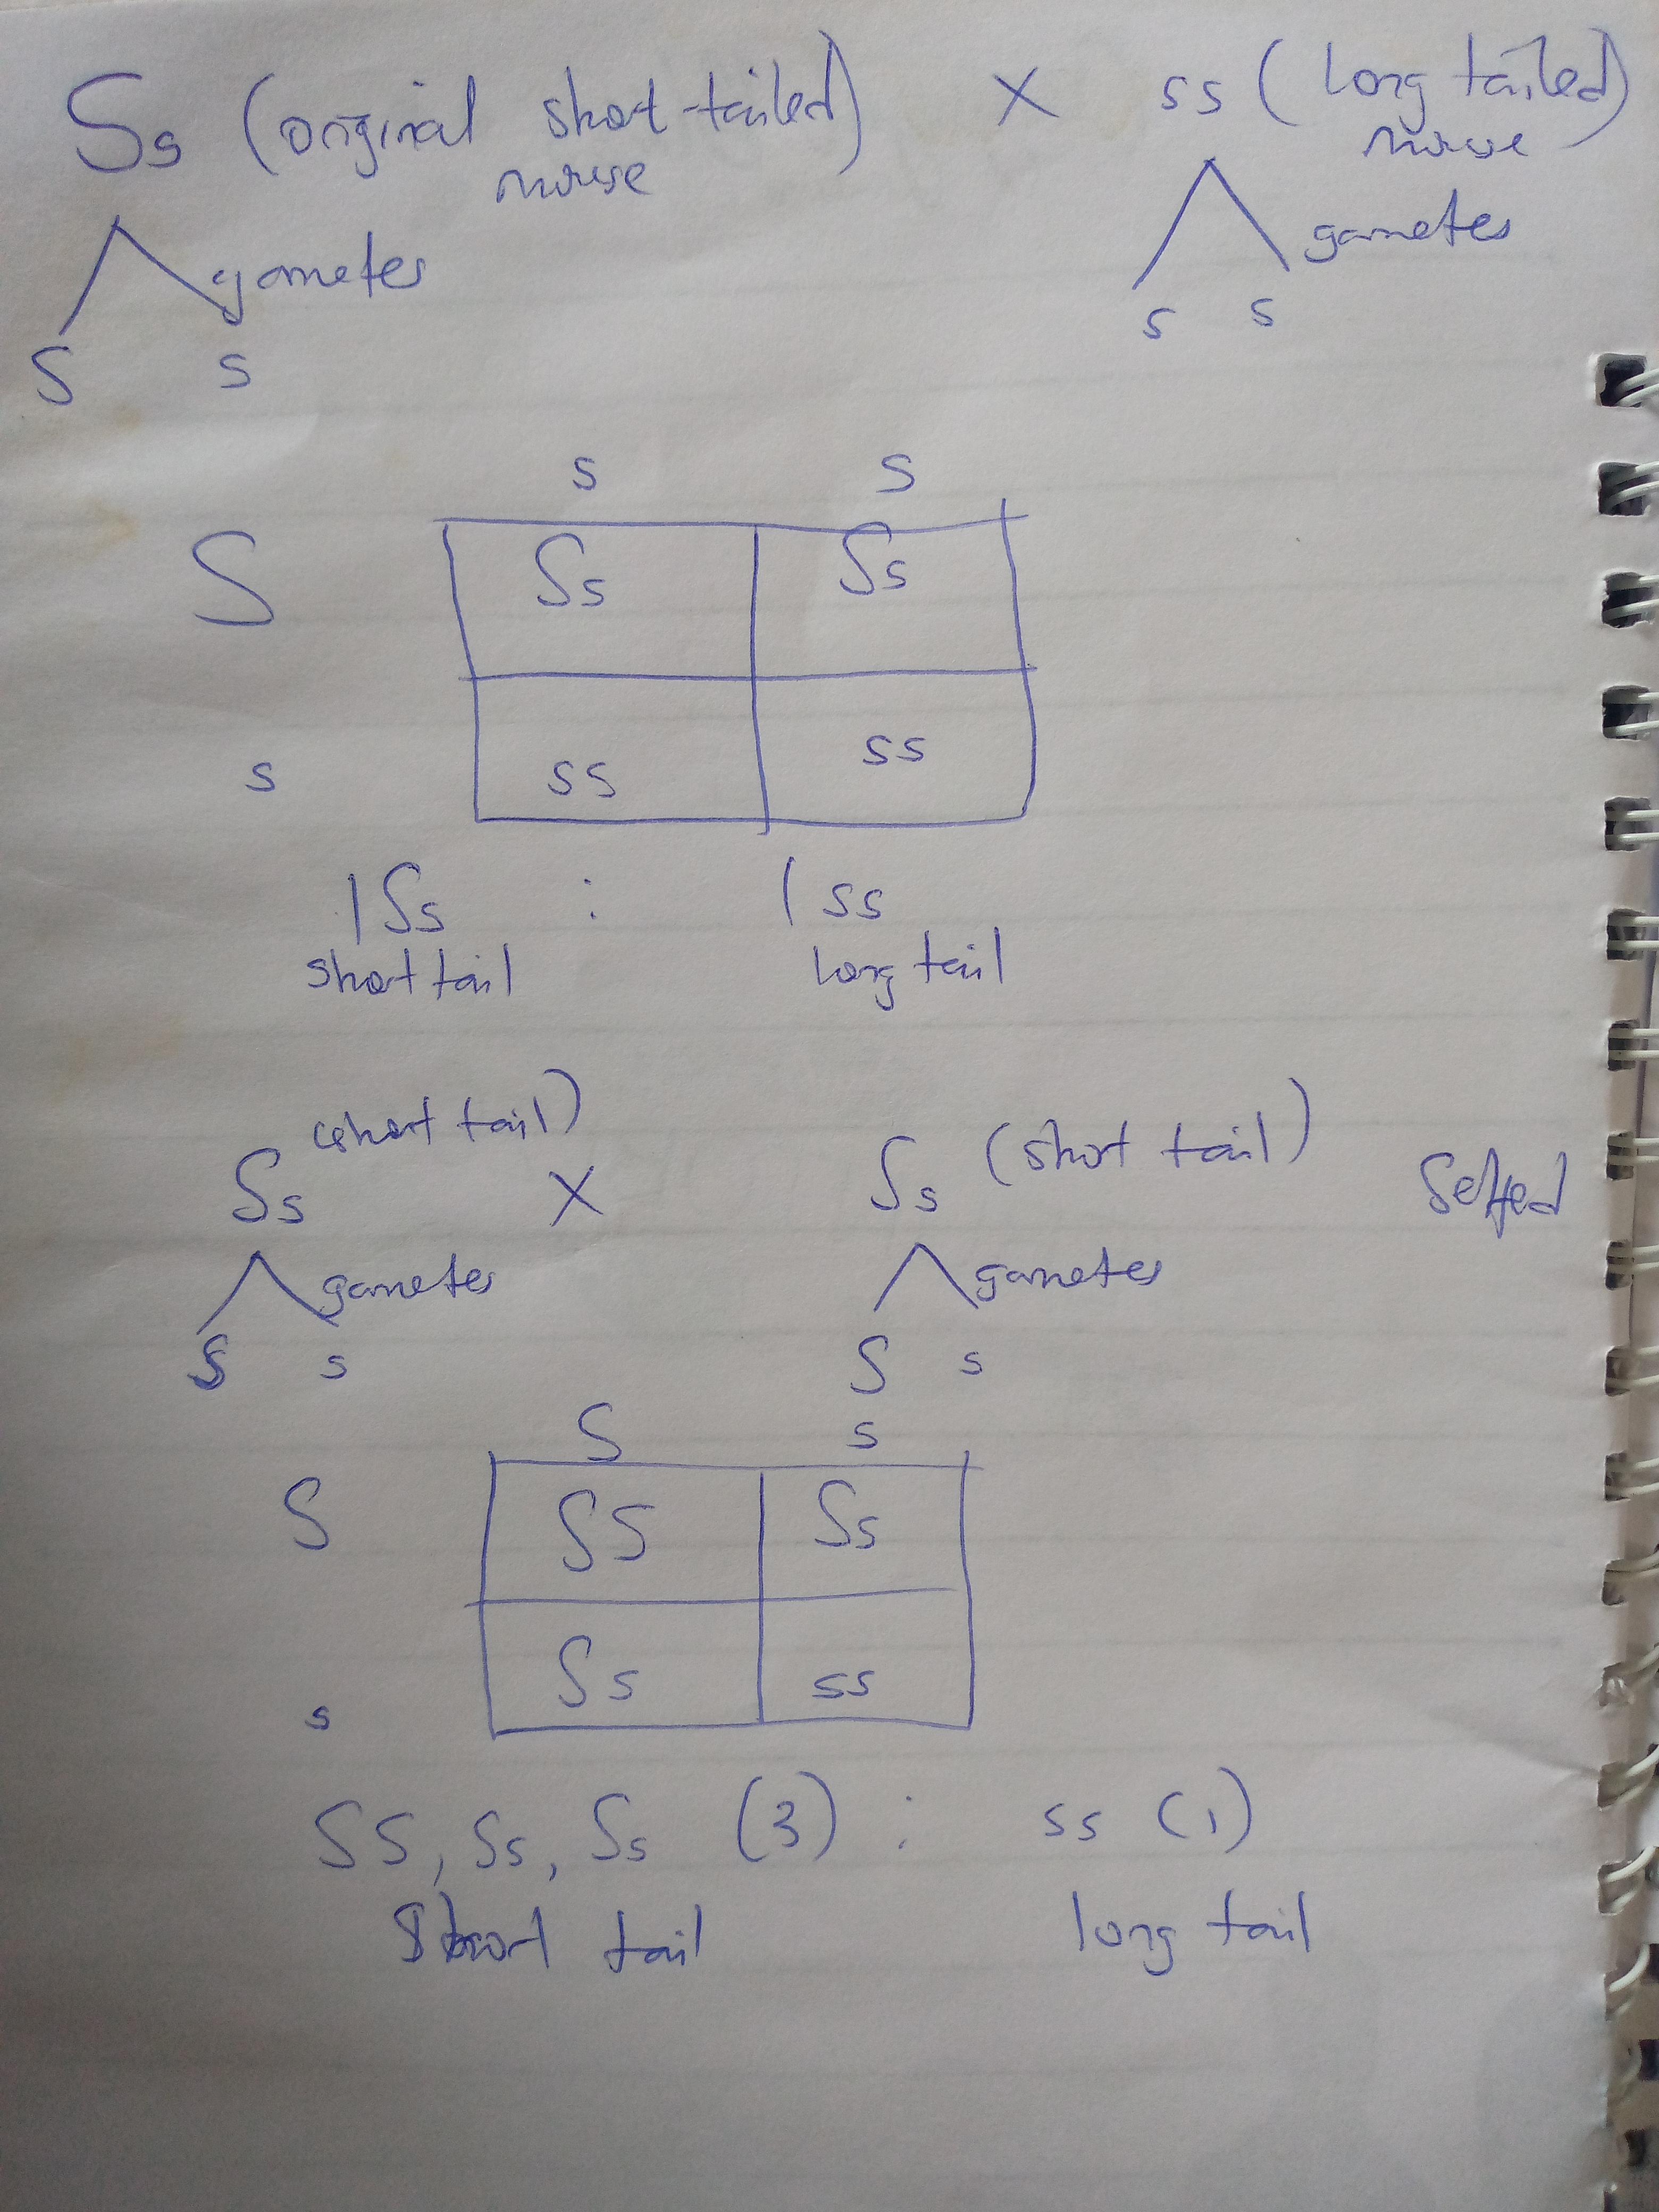 Ss (original short-tailed) X ss (long tailed)
mouse mouse
gametes gametes
S s s s
s s
S Ss Ss
s ss ss
1Ss : 1ss
short tail long tail
Ss (short tail) X Ss (short tail) Selfed
gametes gametes
S s S s
S s
S SS Ss
s Ss ss
SS, Ss, Ss (3) : ss (1)
Short tail long tail